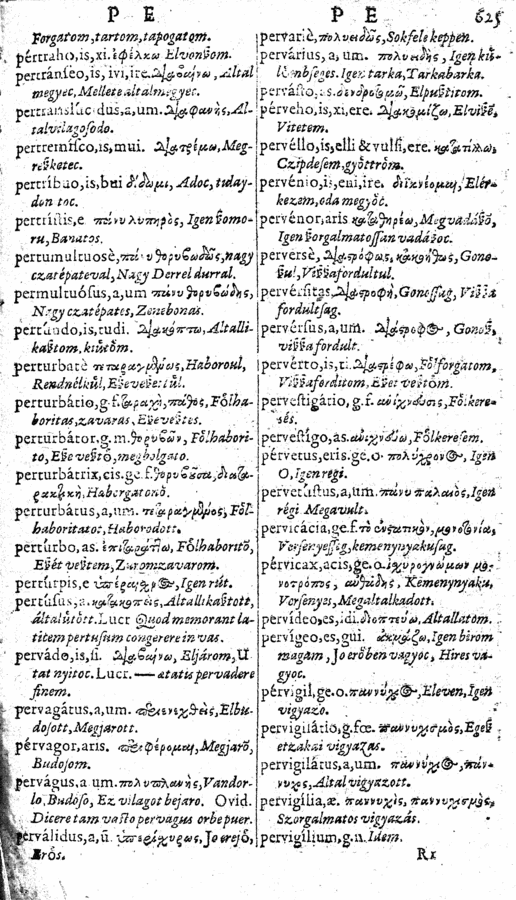 P E
P E 625
Forgatom, tartom, tapogatom.
pértraho, is, xi. ἐφέλκω Elvonßom.
pertránseo, is, ivi, ire. Διαβαίνω, Által
megyec, Mellete altalmegyec.
pertranslucidus, a, um. Διαφανὴς, Ál-
talvilagosodo.
pertremisco, is, mui. Διατρέμω, Meg-
reßketec.
pertríbuo, is, bui δίδωμι, Adoc, tulay-
don toc.
pertrístis, e πάνυ λυπηρὸς, Igen ßomo-
ru, Banatos.
pertumultuosè, πάνυ θορυβωδῶς, nagy
czatépateval, Nagy Derrel durral.
permultuósus, a, um πάνυ θορυβώδης,
Nagy czatépates, Zenebonas.
pertúndo, is, tudi. Διακόπτω, Altalli-
kaßtom, kiütöm.
perturbatè τεταραγμένως, Haboroul,
Rendnélkűl, Eßeveßettűl.
perturbátio, g. f. ταραχὴ, πάθος, Fölha-
boritas, zavaras, Eßeveßtes.
perturbátor, g. m. θορυβῶν, Fölhabori-
to, Eßeveßtő, megbolgato.
perturbátrix, cis. ge. f. θορυβοῦσα, διατα-
ρακτικὴ, Haborgatonő.
perturbátus, a, um. τεταραγμένος, Föl-
haboritatot, Haborodott.
pertúrbo, as. ἐπιταράττω, Fölhaboritō,
Eßét veßtem, Zurom zavarom.
pertúrpis, e ὑπέραισχρος, Igen rút.
pertúsus, a. κατακοπεὶς, Altallikaßtott,
általűtött. Lucr Quod memorant la-
titem pertusum congerere in vas.
pervádo, is, si. Διαβαίνω, Eljárom, U
tat nyitoc. Lucr. — ætatis pervadere
finem.
pervagátus, a, um. περιενεχθεὶς, Elbu-
dosott, Megjarott.
pérvagor, aris. περιφέρομαι, Megjarō,
Budosom.
pervágus, a. um. πολυπλανὴς, Vandor-
lo, Budosō, Ez vilagot bejaro. Ovid.
Dicere tam vasto pervagus orbe puer.
perválidus, a, ū. ὑπερίσχυρος, Jo erejő,
Erős.
pervariè, πολυειδῶς, Sokfele keppen.
pervárius, a, um. πολυειδὴς, Igen kü-
lönbséges. Igen tarka, Tarkabarka.
pervásto, as. Elpußtitom.
pérveho, is, xi, ere. Διακομίζω, Elviße,
Vitetem.
pervéllo, is, elli & vulsi, ere. κατατίλλω,
Czipdesem, gyöttröm.
pervénio, is, eni, ire. διϊκνέομαι, Elér-
kezem, oda megyöc.
pervénor, aris καταθηρέω, Megvadáßō,
Igen ßorgalmatossan vadáßoc.
perversè, Διαστρόφως, κακοήθως, Gono-
ßul, Vißßafordultul.
pervérsitas, Διαστροφὴ, Gonossag, Vißßa
fordultsag.
pervérsus, a, um. Διάστροφος, Gonoß,
vißßa fordult.
pervérto, is, ti. Διαστρέφω, Fölforgatom,
Vißßaforditom, Eßet veßtöm.
pervestigátio, g. f. ἀνίχνευσις, Fölkere-
sés.
pervestígo, as. ἀνιχνεύω, Fölkeresem.
pérvetus, eris. ge. o. πολύχρονος, Igen
O, Igen regi.
pervetústus, a, um. πάνυ παλαιὸς, Igen
régi. Megavult.
pervicácia, ge. f. τὸ ἐνστατικὸν, μονοτονία,
Versenyesség, kemenynyakusag.
pérvicax, acis, ge. o. ἰσχυρογνώμων μο-
νοτρόπος, αὐθάδης, Kemenynyaku,
Versenyes, Megaltalkadott.
pervídeo, es, idi. διοπτεύω, Altallatom.
pervígeo, es, gui. ἀκμάζω, Igen birom
magam, Jo erőben vagyoc, Hires va-
gyoc.
pérvigil, ge. o. παννύχιος, Eleven, Igen
vigyazo.
pervigilátio, g. fœ. παννυχισμὸς, Egéß
etzakai vigyazas.
pervigilátus, a, um. παννύχιος, πάν-
νυχος, Altal vigyazott.
pervigília, æ. παννυχὶς, παννυχισμὸς,
Szorgalmatos vigyazás.
pervigílium, g. n. Idem.
R r